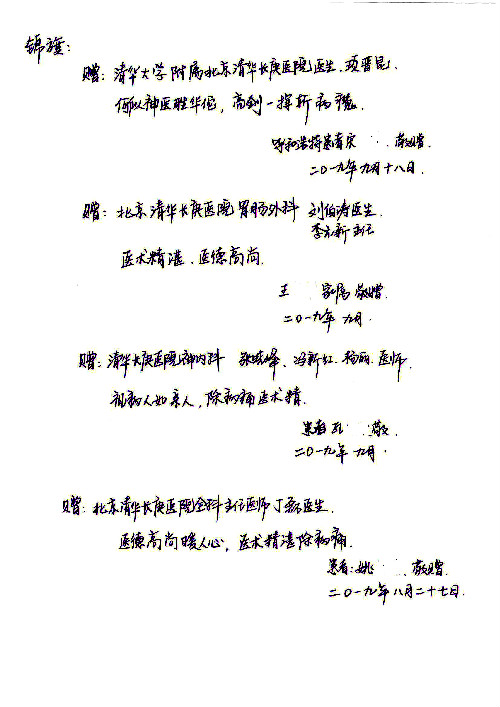 锦旗:
赠:清华大学附属北京清华长庚医院医生.项晋昆.
何似神医胜华佗,高剑一挥斩病魔.
呼和浩特患者宋 敬赠.
二〇一九年九月十八日.
赠:北京清华长庚医院胃肠外科 刘伯涛医生.
李元新主任
医术精湛.医德高尚.
王 家属敬赠.
二〇一九年九月.
赠:清华长庚医院神内科 冯新红.杨丽.医师.
视病人如亲人,除病痛医术精.
患者孔 敬.
二〇一九年九月.
赠:北京清华长庚医院全科主任医师丁磊医生.
医德高尚暖人心,医术精湛除病痛.
患者:姚 敬赠.
二〇一九年八月二十七日.